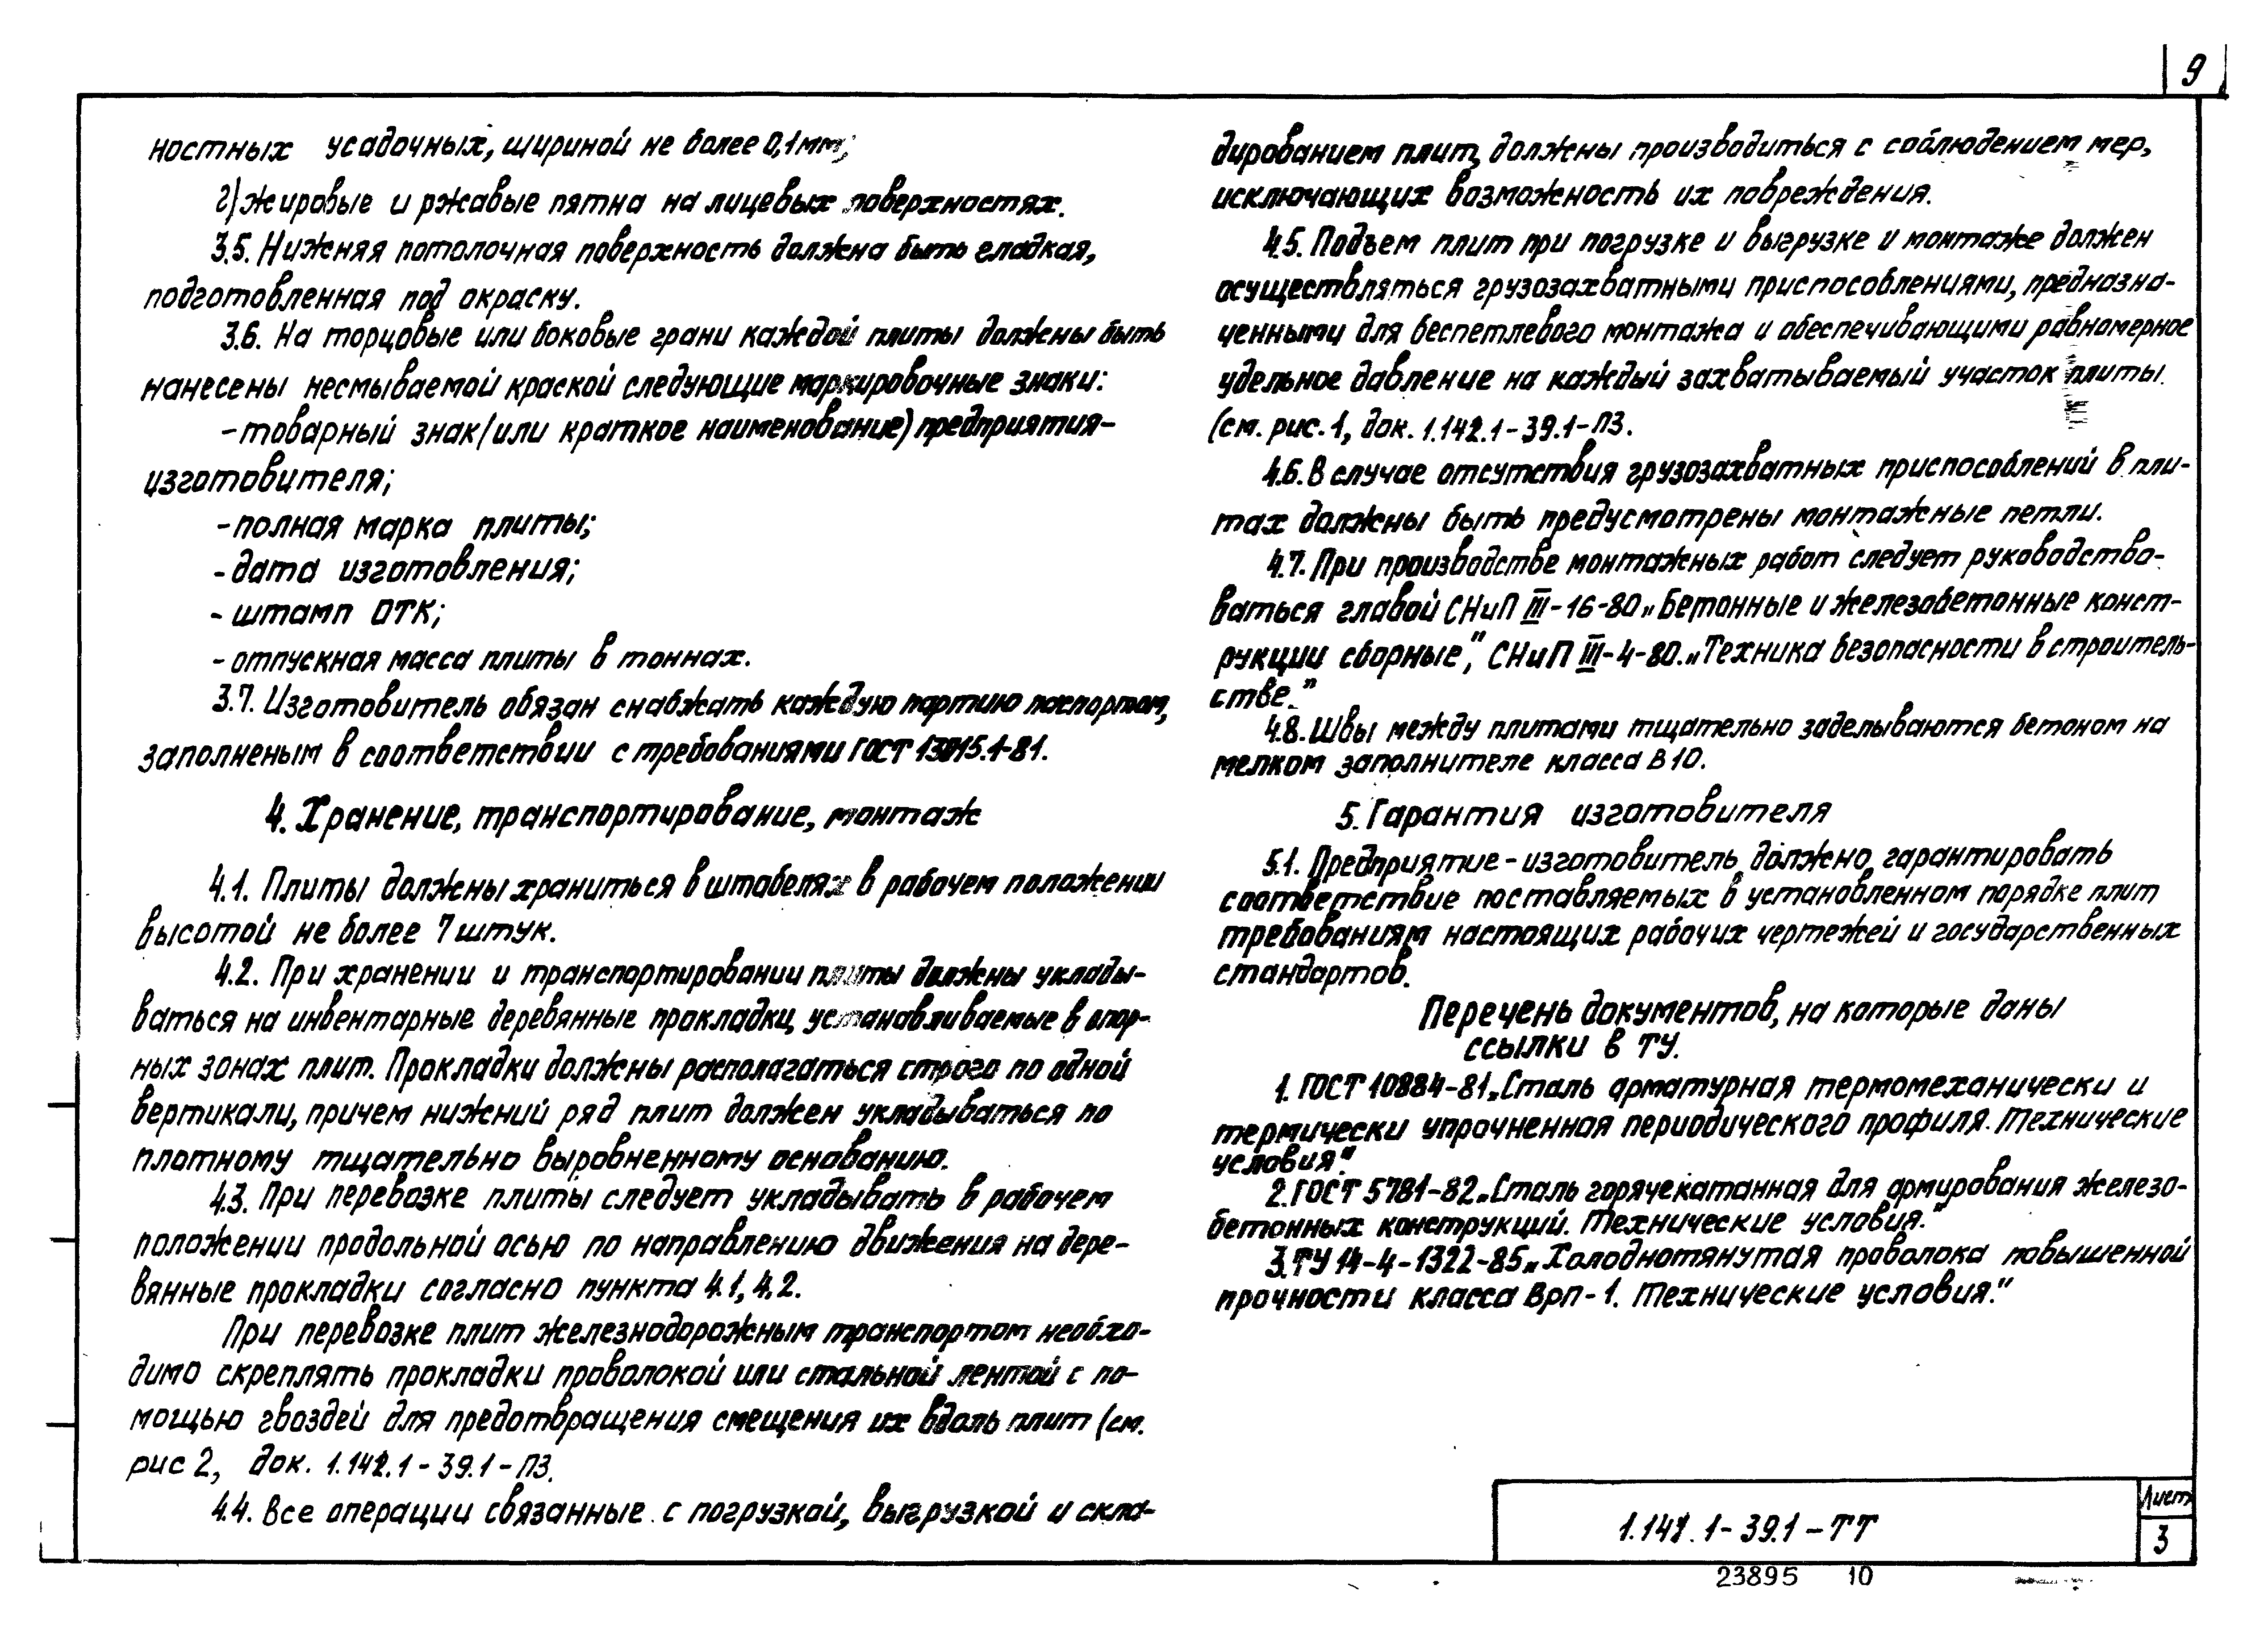 9
ностных усадочных, шириной не более 0,1мм;
г) жировые и ржавые пятна на лицевых поверхностях.
3.5. Нижняя потолочная поверхность должна быть гладкая,
подготовленная под окраску.
3.6. На торцовые или боковые грани каждой плиты должны быть
нанесены несмываемой краской следующие маркировочные знаки:
-товарный знак (или краткое наименование) предприятия-
изготовителя;
-полная марка плиты;
-дата изготовления;
- штамп ОТК;
-отпускная масса плиты в тоннах.
3.7. Изготовитель обязан снабжать каждую партию паспортом,
заполненым в соответствии с требованиями ГОСТ 13015.1-81.
4. Хранение, транспортирование, монтаж
4.1. Плиты должны храниться в штабелях в рабочем положении
высотой не более 7 штук.
4.2. При хранении и транспортировании плиты должны уклады-
ваться на инвентарные деревянные прокладки, устанавливаемые в опор-
ных зонах плит. Прокладки должны располагаться строго по одной
вертикали, причем нижний ряд плит должен укладываться по
плотному тщательно выровненному основанию.
4.3. При перевозке плиты следует укладывать в рабочем
положении продольной осью по направлению движения на дере-
вянные прокладки согласно пункта 4.1, 4.2.
При перевозке плит железнодорожным транспортом необхо-
димо скреплять прокладки проволокой или стальной лентой с по-
мощью гвоздей для предотвращения смещения их вдоль плит (см.
рис 2, док. 1.141.1-39.1-ПЗ.
4.4. Все операции связанные с погрузкой, выгрузкой и скла-
дированием плит, должны производиться с соблюдением мер,
исключающих возможность их повреждения.
4.5. Подъем плит при погрузке и выгрузке и монтаже должен
осуществляться грузозахватными приспособлениями, предназна-
ченными для беспетлевого монтажа и обеспечивающими равномерное
удельное давление на каждый захватываемый участок плиты.
(см. рис. 1, док. 1.141.1-39.1-ПЗ.
4.6. В случае отсутствия грузозахватных приспособлений в пли-
тах должны быть предусмотрены монтажные петли.
4.7. При производстве монтажных работ следует руководство-
ваться главой СНиП III-16-80 „Бетонные и железобетонные конст-
рукции сборные", СНиП III-4-80 „Техника безопасности в строитель-
стве."
4.8. Швы между плитами тщательно заделываются бетоном на
мелком заполнителе класса В10.
5. Гарантия изготовителя
5.1. Предприятие-изготовитель должно гарантировать
соответствие поставляемых в установленном порядке плит
требованиям настоящих рабочих чертежей и государственных
стандартов.
Перечень документов, на которые даны
ссылки в ТУ.
1. ГОСТ 10884-81 „Сталь арматурная термомеханически и
термически упрочненная периодического профиля. Технические
условия".
2. ГОСТ 5781-82 „Сталь горячекатанная для армирования железо-
бетонных конструкций. Технические условия."
3. ТУ 14-4-1322-85 „Холоднотянутая проволока повышенной
прочности класса Врп-1. Технические условия."
1.141.1-39.1-ТТ
Лист
3
23895 10